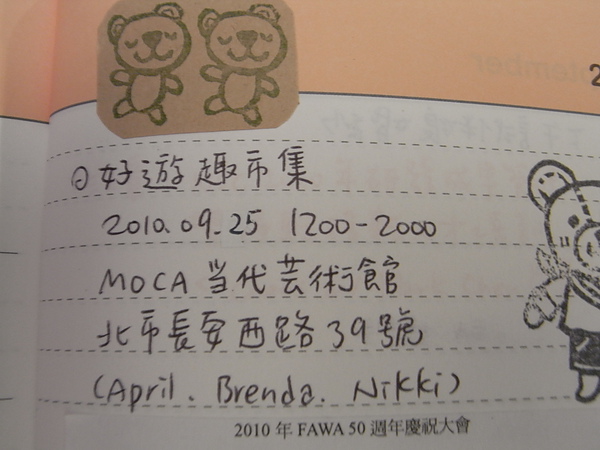 ◎好遊趣市集
2010.09.25 1200-2000
MOCA 当代芸術館
北市長安西路39號
(April. Brenda. Nikki)
2010年FAWA 50週年慶祝大會